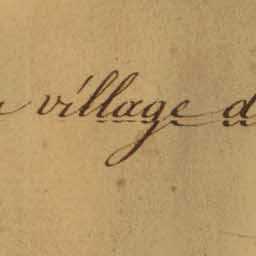 village d